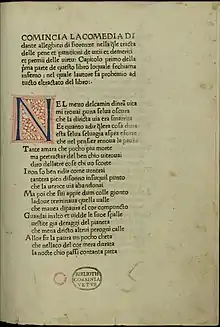 COMINCIA LA COMEDIA DI
dante alleghieri di fiorenze nella q̃le tracta
delle pene et punitioni de uitii et demeriti
et premii delle uirtu: Capitolo primo della
p̃ma parte de questo libro loquale sechiama
inferno : nel quale lautore fa prohemio ad
tucto eltractato del libro:·
NEL mezo delcamin dinr̃a uita
mi trouai p̃una selua oscura
che la diricta uia era smarrita
Et quanto adir q̃lera cosa dura
esta selua seluagia aspra eforte
che nel pensier renoua la paura
Tante amara che pocho piu morte
ma pertractar del ben chio uitrouai
diro dellaltre cose chi uo scorte
I non so ben ridir come uentrai
tantera pien disonno insuquil punto
che la uerace uia abandonai
Ma poi che fui appie dum colle gionto
ladoue terminaua quella ualle
che mauea dipaura el cor compuncto
Guardai inalto et uiddi le suoe spalle
uestite gia deraggi del pianeta
che mena dricto altrui perogni calle
Allor fu la paura un pocho cheta
che nellaco del cor mera durata
la nocte chio passai contanta pieta
BIBLIOTH
VETUS